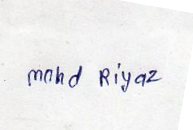 mohd Riyaz